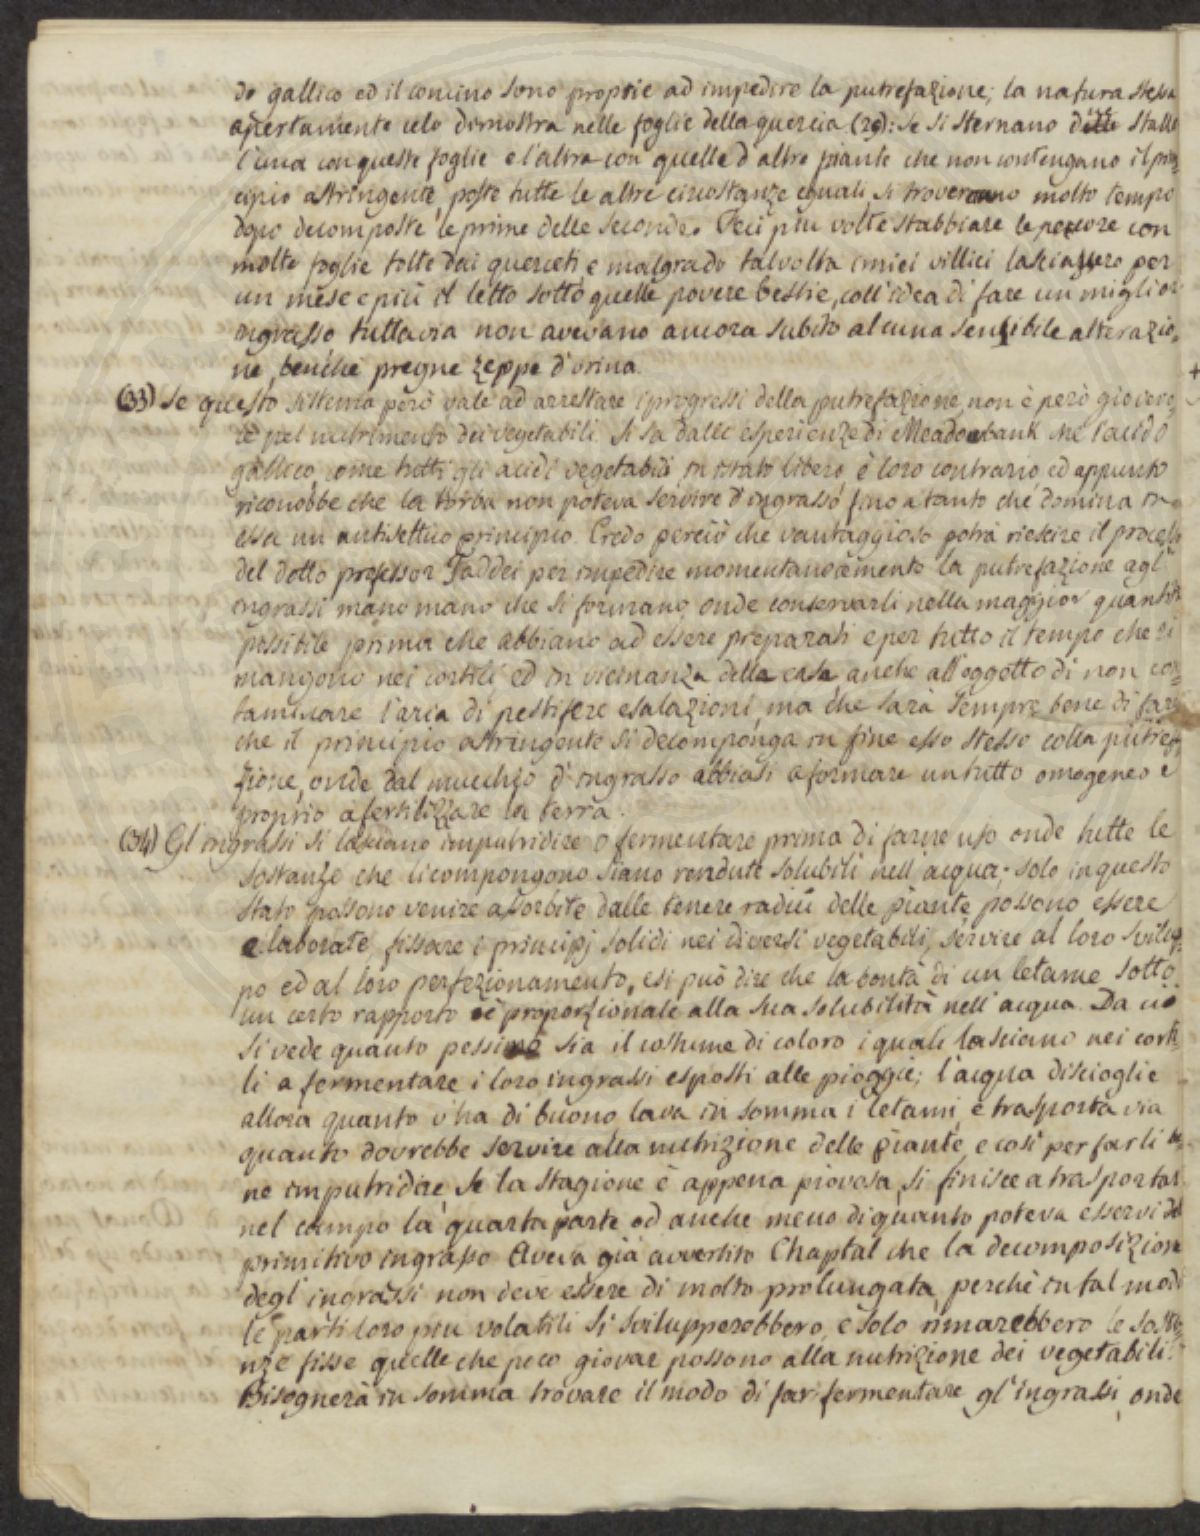 do gallico ed il concino sono proprie ad impedire la putrefazione; la natura stessa
apertamente celo dimostra nelle foglie della quercia (29): se si sternano delle stalle
l'una con queste foglie e l'altra con quelle d'altre piante che non contengano il prin=
cipio astringente, poste tutte le altre circostanze eguali, si troveranno molto tempo
dopo decomposte le prime delle seconde. Feci piu volte stabbiare le pecore con
molte foglie tolte dai querceti e malgrado talvolta i miei villici lasciassero per
un mese e più il letto sotto quelle povere bestie, coll'idea di fare un miglior
ingrasso tuttavia non avevano ancora subito alcuna sensibile alterazio=
ne, benchè pregne zeppe d'orina.
(33) Se questo sistema però vale ad arrestare i progressi della putrefazione, non è però giovevo=
le pel nutrimento dei vegetabili. Si sa dalle esperienze di Meadowbank che l'acido
gallico, come tutti gli acidi vegetabili, in istato libero, è loro contrario ed appunto
riconobbe che la torba non poteva servire d'ingrasso, fino a tanto che domina in
essa un antisettico principio. Credo perciò che vantaggioso potrà riescire il processo
del dotto professor Taddei per impedire momentaneamente la putrefazione agl'
ingrassi mano mano che si formano, onde conservarli nella maggior quantità
possibile prima che abbiano ad essere preparati e per tutto il tempo che ri
mangono nei cortili, ed in vicinanza della casa, anche all'oggetto di non con=
taminare l'aria di pestifere esalazioni, ma che sarà sempre bene di fare
che il principio astringente si decomponga in fine esso stesso colla putrefa
zione, onde dal mucchio d'ingrasso abbiasi a formare un tutto omogeneo e
proprio a fertilizzare la terra.
(34) Gl'ingrassi si lasciano imputridire o fermentare prima di farne uso onde tutte le
sostanze che li compongono siano rendute solubili nell'acqua; solo in questo
stato possono venire assorbite dalle tenere radici delle piante, possono essere
elaborate, fissare i principj solidi nei diversi vegetabili, servire al loro svilup=
po ed al loro perfezionamento, e si può dire che la bontà di un letame sotto
un certo rapporto è proporzionale alla sua solubilità nell'acqua. Da ciò
si vede quanto pessimo sia il costume di coloro i quali lasciano nei corti=
li a fermentare i loro ingrassi esposti alle pioggie; l'acqua discioglie
allora quanto v'ha di buono, lava in somma i letami, e trasporta via
quanto dovrebbe servire alla nutrizione delle piante, e così per farli be=
ne imputridire, se la stagione è appena piovosa, si finisce a trasportar
nel campo la quarta parte ed anche meno di quanto poteva esservi del
primitivo ingrasso. Aveva già avvertito Chaptal che la decomposizione
degl'ingrassi non deve essere di molto prolungata, perchè in tal modo
le parti loro piu volatili si svilupperebbero, e solo rimarebbero le sosta=
nze fisse quelle che poco giovar possono alla nutrizione dei vegetabili.
Bisognerà in somma trovare il modo di far fermentare gl'ingrassi, onde